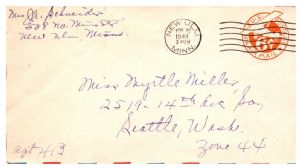 Mrs. M. Schneider
508 No. Minn St
New Ulm, Minn.
NEW ULM
1943
MINN.
U.S.
6¢
MAIL
Miss Myrtle Miller
2519-14th Ave So.
Seattle, Wash.
Zone 44
Apt 413